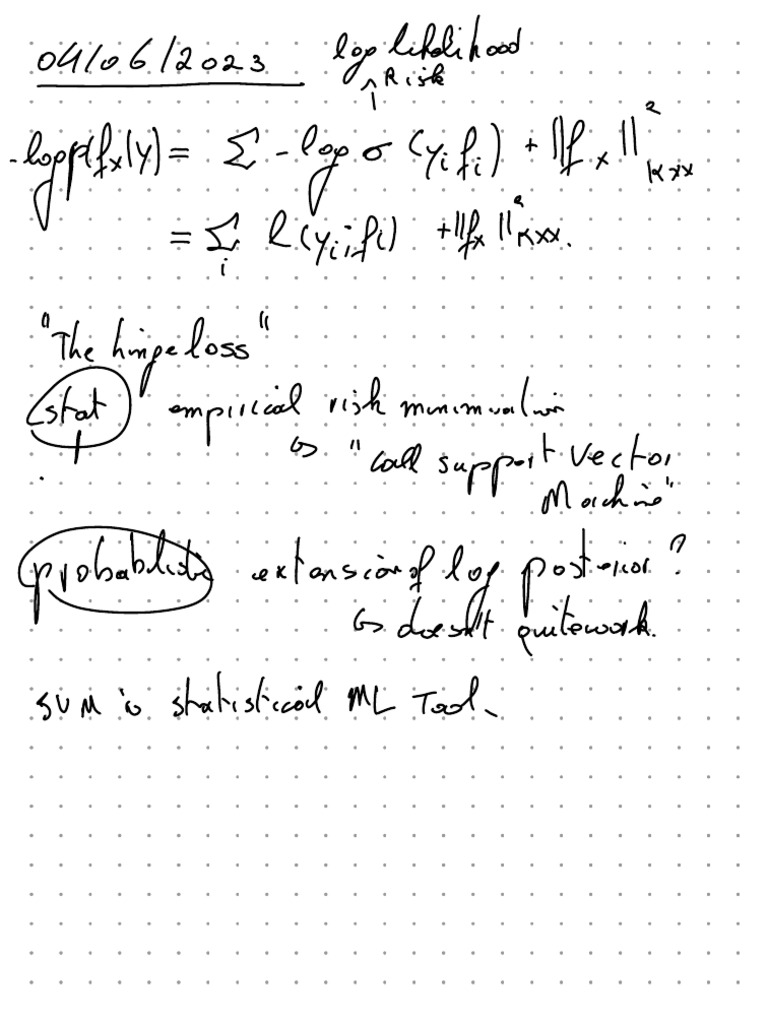 04/06/2023 log likelihood
^ Risk
-log p(f_x|y) = Σ -log σ(y_i f_i) + ||f_x||²_Kxx
= Σ_i l(y_i; f_i) + ||f_x||²_Kxx.
"The hinge loss"
stat empirical risk
↳ "call support vector
Machine"
probablistic extension of log posterior?
↳ doesn't quite work.
SVM is statistical ML Tool.